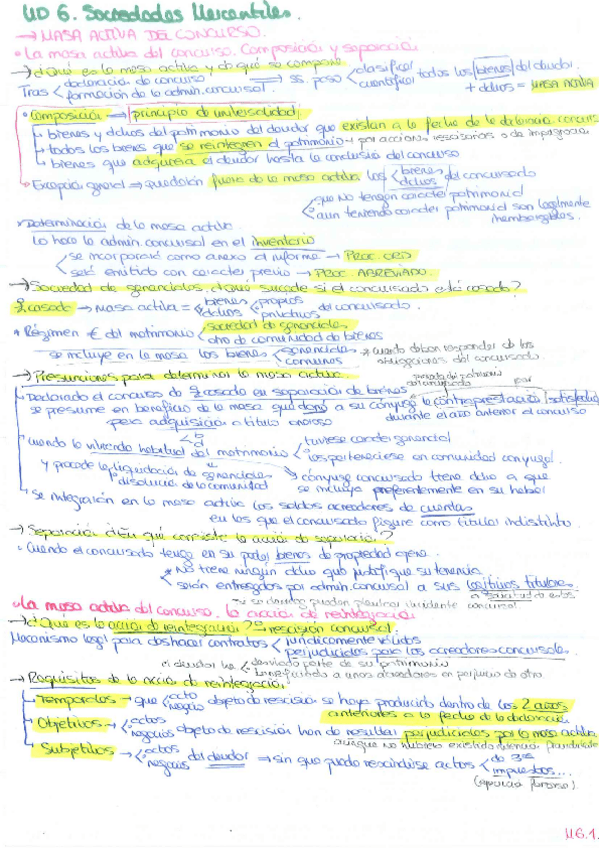 UD 6. Sociedades Mercantiles.
→ MASA ACTIVA DEL CONCURSO.
• La masa activa del concurso. Composición y separación
→ ¿Qué es la masa activa y de qué se compone?
Tras < declaración de concurso ⟹ ss. paso < clasificar todos los bienes del deudor
formación de la admin. concursal cuantificar + ddhos = MASA ACTIVA
• Composición ⟹ principio de universalidad
bienes y ddhos del patrimonio del deudor que existan a la fecha de la declarac. concurso
todos los bienes que se reintegren al patrimonio por acciones rescisorias o de impugnación
bienes que adquiera el deudor hasta la conclusión del concurso
• Excepción general ⟹ quedarán fuera de la masa activa los < bienes ddhos del concursado
que no tengan carácter patrimonial
aun teniendo carácter patrimonial son legalmente inembargables.
Determinación de la masa activa.
Lo hace la admin. concursal en el inventario
se incorporará como anexo al informe → PROC. ORD
será emitido con carácter previo → PROC. ABREVIADO.
→ Sociedad de gananciales. ¿Qué sucede si el concursado está casado?
casado → masa activa = < bienes ddhos < propios privativos del concursado.
* Régimen € del matrimonio < sociedad de gananciales
otro de comunidad de bienes
se incluye en la masa los bienes < gananciales comunes * cuando deban responder de las obligaciones del concursado
→ Presunciones para determinar la masa activa.
Declarado el concurso de casado en separación de bienes
se presume en beneficio de la masa que donó a su cónyuge la contraprestación satisfecha
para adquisición a título oneroso durante el año anterior al concurso
Cuando la vivienda habitual del matrimonio < tuviese carácter ganancial
les perteneciese en comunidad conyugal.
y proceda la < liquidación de gananciales disolución de la comunidad
cónyuge concursado tiene ddho a que
se incluya preferentemente en su haber
Se integrarán en la masa activa los saldos acreedores de cuentas
en los que el concursado figure como titular indistinto.
→ Separación. ¿En qué consiste la acción de separación?
• Cuando el concursado tenga en su poder bienes de propiedad ajena.
* No tiene ningún ddho que justifique su tenencia
serán entregados por admin. concursal a sus legítimos titulares
a solicitud de estos
* se deniega pueden plantear incidente concursal
• La masa activa del concurso. La acción de reintegración
→ ¿Qué es la acción de reintegración? → rescisión concursal.
Mecanismo legal para deshacer contratos < jurídicamente válidos
perjudiciales para los acreedores concursales.
el deudor ha < desviado parte de su patrimonio
beneficiando a unos acreedores en perjuicio de otro
→ Requisitos de la acción de reintegración.
Temporales → que < acto negocio objeto de rescisión se haya producido dentro de los 2 años
anteriores a la fecha de la declaración
Objetivos → < actos negocios objeto de rescisión han de resultar perjudiciales para la masa activa
aunque no hubiere existido intención fraudulenta
Subjetivos → < actos negocios del deudor → sin que pueda rescindirse actos < de 3ºs
impuestos...
U6.1.